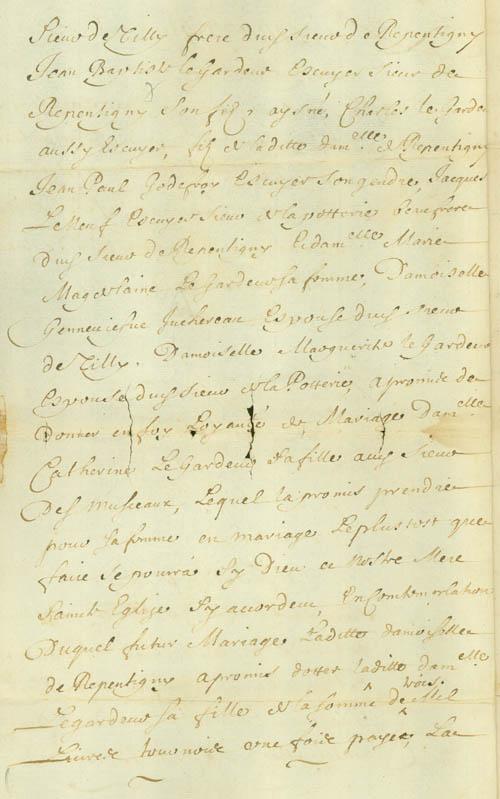 Sieur de Tilly frere dud sieur de Repentigny
Jean Baptiste le Gardeur Escuyer Sieur de
Repentigny son filz aysné, Charles le Garde
aussy Escuyer, filz de laditte dam.elle de Repentigny
Jean Paul Godefroy Escuyer son gendre, Jacques
Le Neuf Escuyer Sieur de la potterie beaufrere
dud Sieur de Repentigny Et dam.elle Marie
Magdelaine Le Gardeur sa femme, Damoiselle
Genneviefve Juchereau Espouse dud Sieur
de Tilly. Damoiselle Marguerite le Gardeur
Espouse dud Sieur de la Potterie, a promis de
Donner en foy Loyauté de Mariage Dam.elle
Catherine Le Gardeur sa fille aud Sieur
Des Musceaux, Lequel la promis prendre
pour sa femme en mariage Le plustost que
faire se pourra sy Dieu et Nostre Mere
Saincte Eglise sy accordent, En Contemplation
Duquel futur Mariage Laditte damoiselle
de Repentigny a promis dotter laditte dam.elle
Le gardeur sa fille de la somme de trois Mil
Livres tournois une fois payée, La